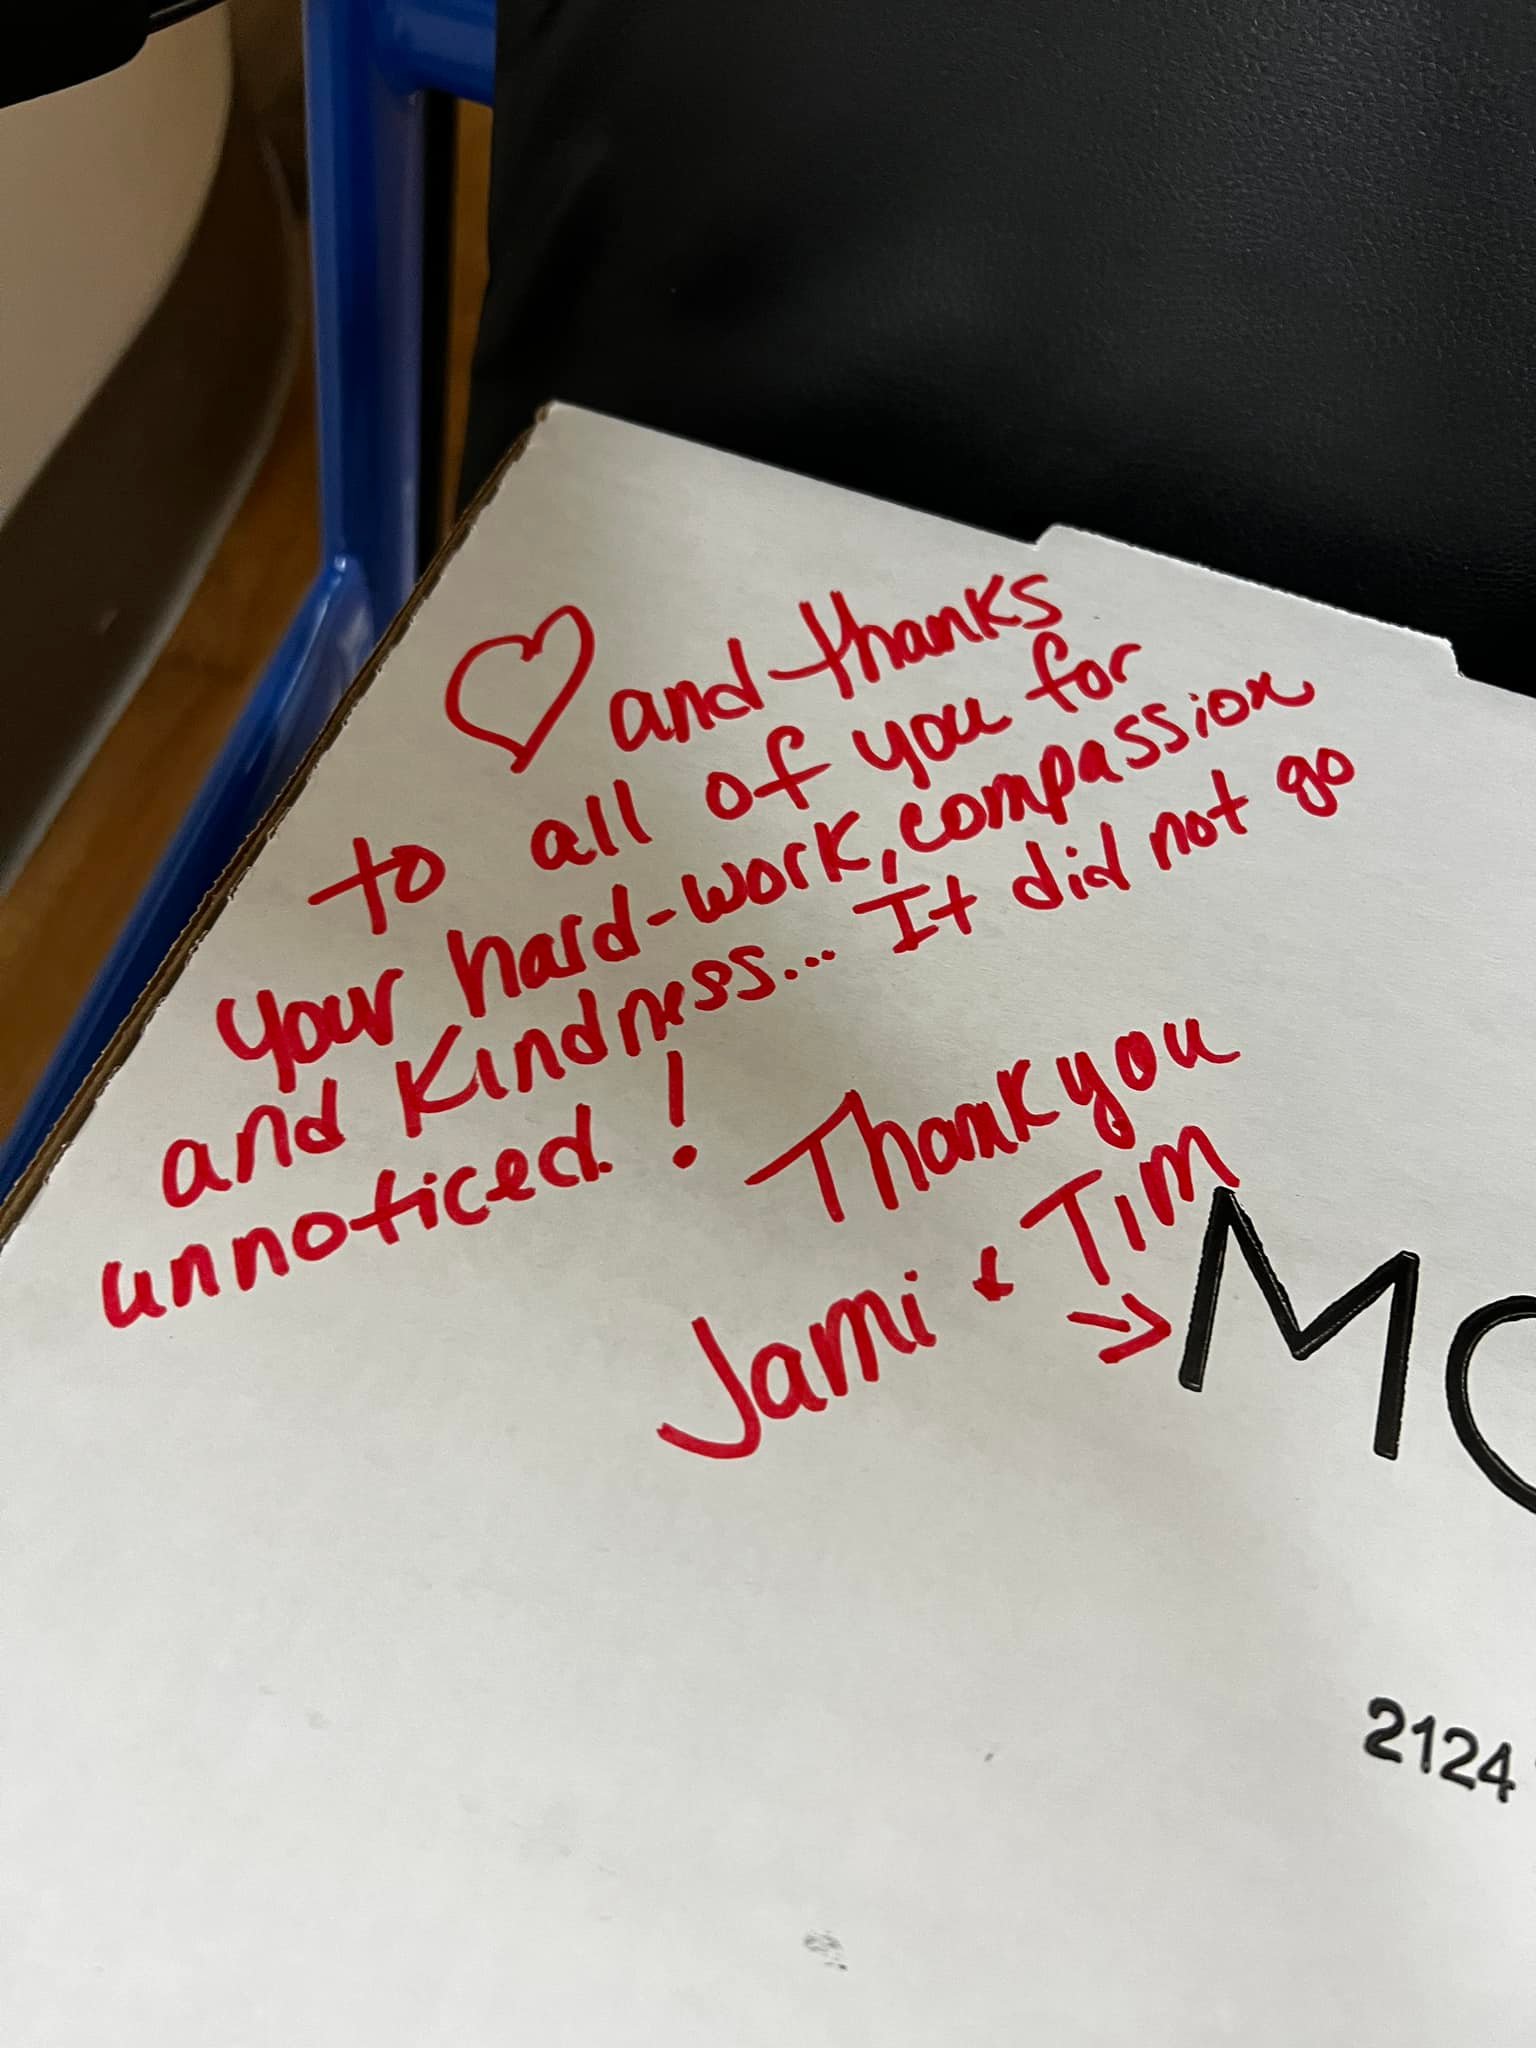 ♡ and thanks
to all of you for
your hard-work, compassion
and kindness... It did not go
unnoticed!
Thank you
Jami & Tim
→
MO
2124